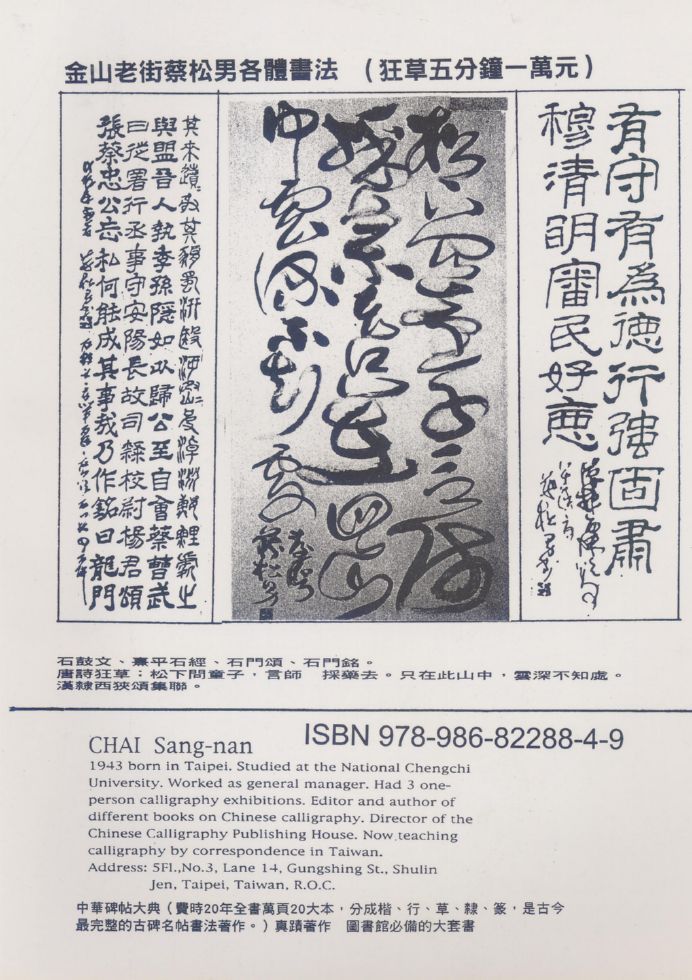 金山老街蔡松男各體書法　（狂草五分鐘一萬元）
有守有為德行強固肅
穆清明審民好惡
松下問童子言師
採藥去只在此山
中雲深不知處
其來蹟
與盟晉人執季孫隱如以歸公至自會蔡曹武
曰從署行丞事守安陽長故司隸校尉楊君頌
張蔡忠公忘私何能成其事哉乃作銘曰龍門
石鼓文、熹平石經、石門頌、石門銘。
唐詩狂草：松下問童子，言師　採藥去。只在此山中，雲深不知處。
漢隸西狹頌集聯。
ISBN 978-986-82288-4-9
CHAI Sang-nan
1943 born in Taipei. Studied at the National Chengchi
University. Worked as general manager. Had 3 one-
person calligraphy exhibitions. Editor and author of
different books on Chinese calligraphy. Director of the
Chinese Calligraphy Publishing House. Now teaching
calligraphy by correspondence in Taiwan.
Address: 5Fl.,No.3, Lane 14, Gungshing St., Shulin
Jen, Taipei, Taiwan, R.O.C.
中華碑帖大典（費時20年全書萬頁20大本，分成楷、行、草、隸、篆，是古今
最完整的古碑名帖書法著作。）真蹟著作　圖書館必備的大套書